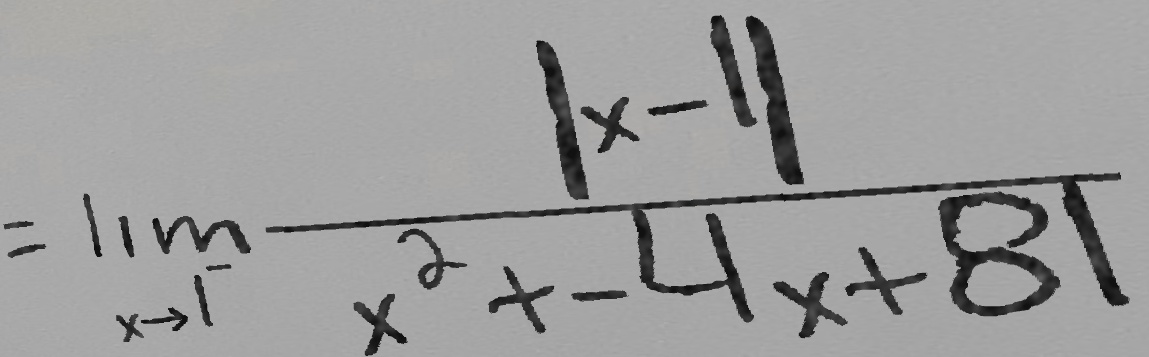 = lim x→1⁻ |x-1| / x² + -4x + 81